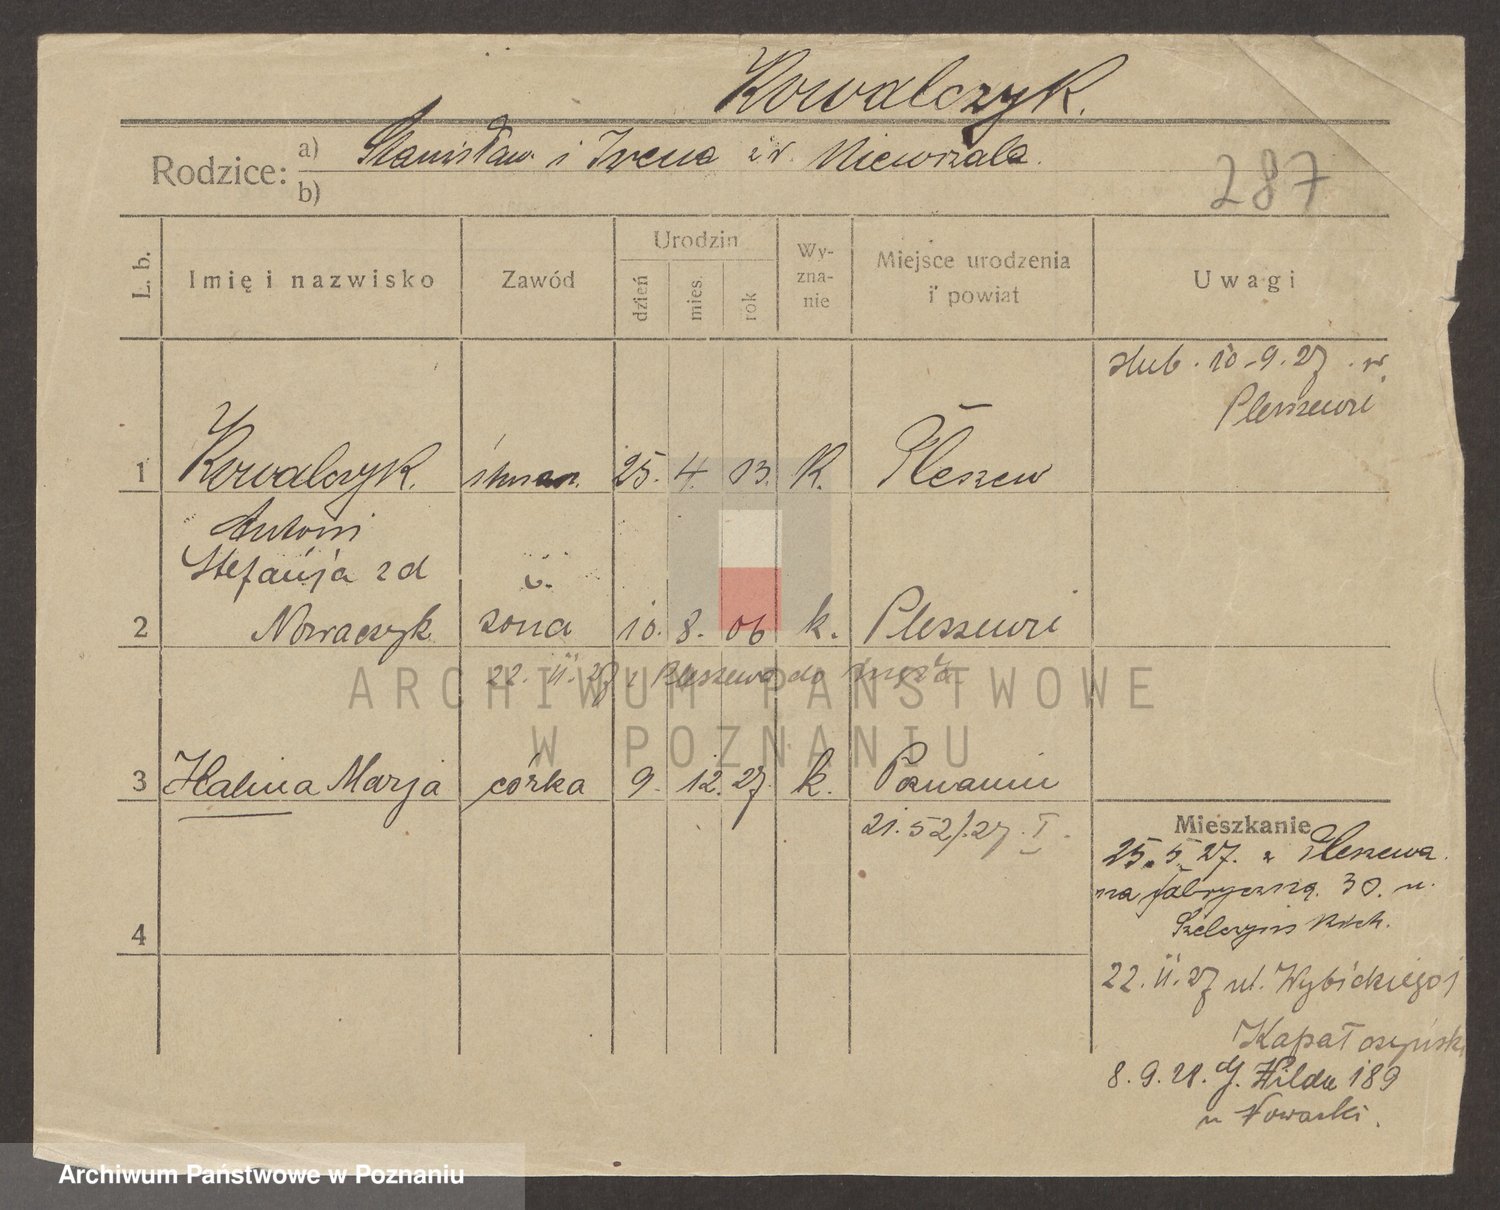 Kowalczyk.
Rodzice: a) Stanisław i Irena z d. Niewrzala.
b)
287
L. b.
Imię i nazwisko
Zawód
Urodzin
dzień
mies.
rok
Wy-
zna-
nie
Miejsce urodzenia
i powiat
Uwagi
ślub. 10-9.27. w
Pleszewi
1 Kowalczyk. 25. 4. 03. K. Pleszew
Antoni
Stefanja z d
2 Nowaczyk żona 10. 8. 06 k. Pleszewi
22. 11. 27 z Pleszewa do męża
ARCHIWUM PAŃSTWOWE
W POZNANIU
3 Halina Marja córka 9. 12. 27. k. Poznaniu
21.52/.27. I.
4
Mieszkanie
25. 5. 27. z Pleszewa.
na fabryczną. 30. u.
22. 11. 27 ul. Wybickiego 1
8. 9. 28. G. Wilda 189
u Nowacki.
Archiwum Państwowe w Poznaniu